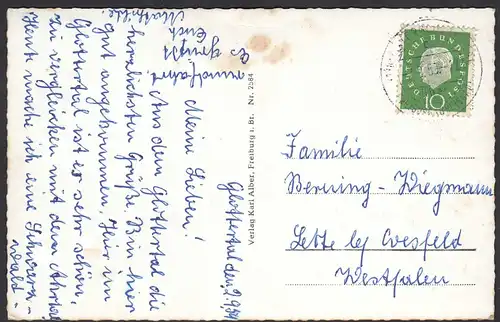 Glottertal den 9.9.59
Meine Lieben!
Aus dem Glottertal die
herzlichsten Grüße. Bin hier
gut angekommen. Hier im
Glottertal ist es sehr schön,
zu vergleichen mit dem Ahrtal
Heute mache ich eine Schwarz-
wald-
rundfahrt
Es grüßt
Euch
Mathilde
Verlag Karl Alber, Freiburg i. Br. Nr. 2584
DEUTSCHE BUNDESPOST
10
Familie
Berning-Wiegmann
Lette bei Coesfeld
Westfalen